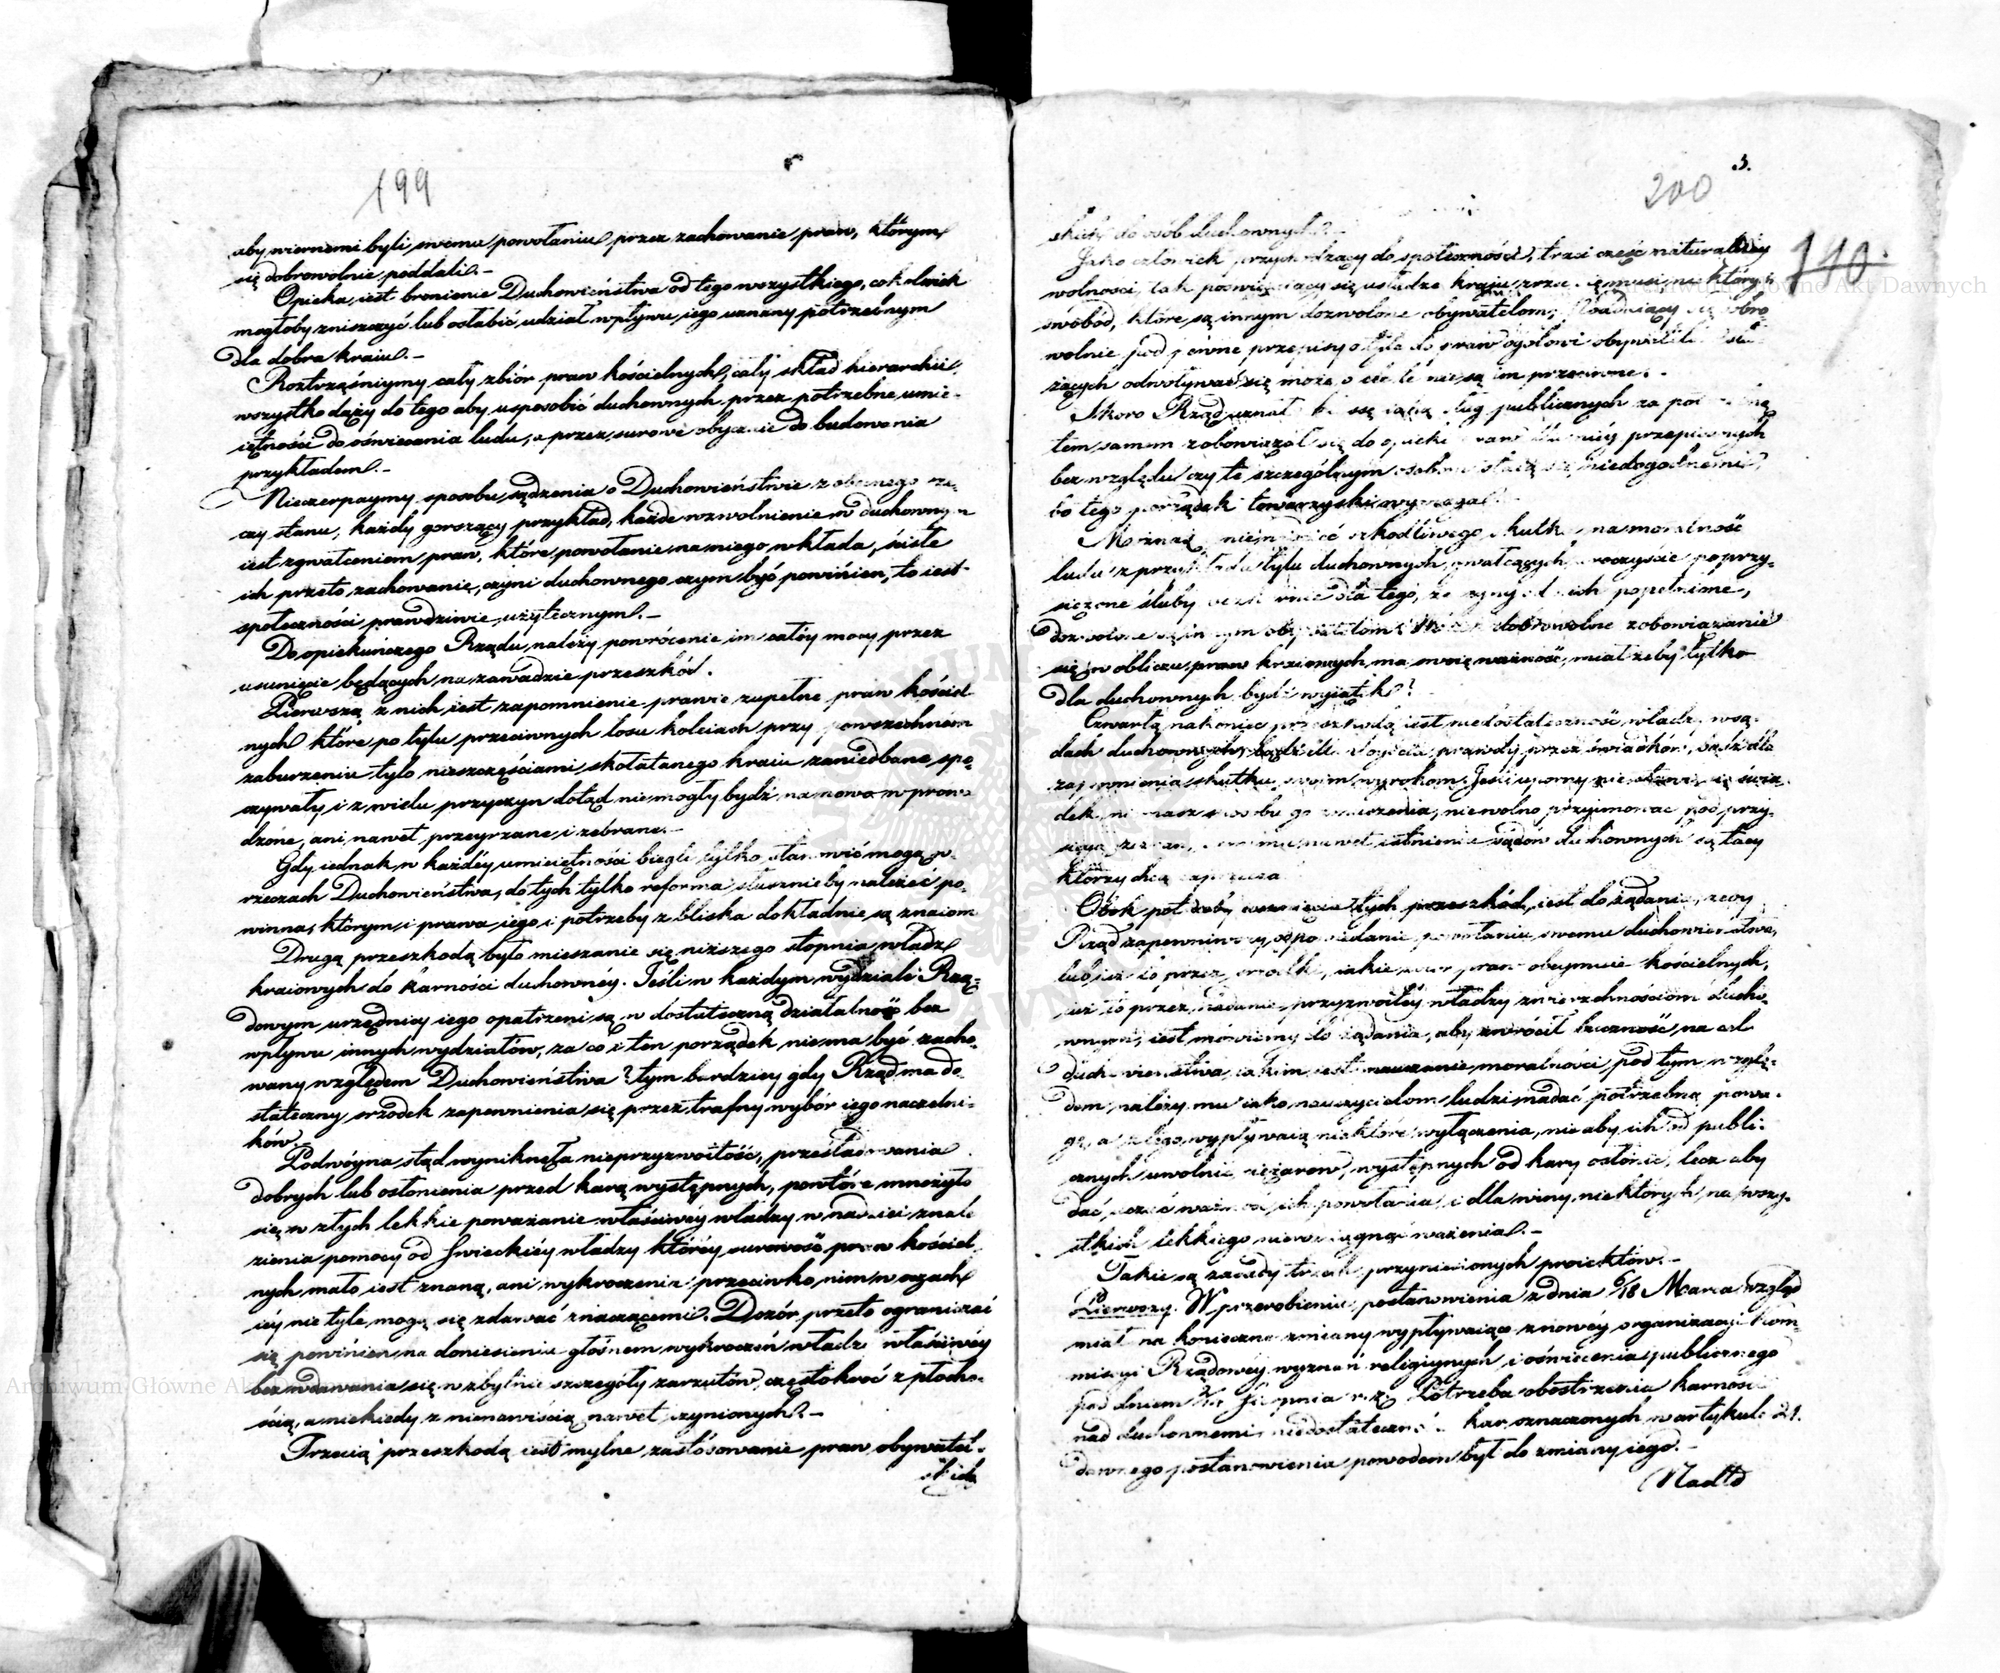 199
aby wiernemi byli swemu powołaniu przez zachowanie praw, którym
się dobrowolnie poddali.-
Opieka, iest bronienie Duchowieństwa od tego wszystkiego, cokolwiek
mogłoby zniszczyć lub osłabić udział wpływu iego uznany potrzebnym
dla dobra kraiu.-
Roztrząśniymy cały zbiór praw kościelnych, cały skład hierarchii,
wszystko dąży do tego aby usposobić duchownych przez potrzebne umie-
iętności do oświecania ludu, a przez surowe obyczaie do budowania
przykładem.-
Nieczerpaymy sposobu sądzenia o Duchowieństwie z obecnego rze-
czy stanu, każdy gorszący przykład, każde rozwolnienie w duchownym
iest zgwałceniem praw, które powołanie na niego wkłada, ścisłe
ich przeto zachowanie, czyni duchownego czym być powinien, to iest
społeczności prawdziwie użytecznym.-
Do opiekuńczego Rządu, należy powrócenie im całéy mocy przez
usunięcie będących na zawadzie przeszkód.
Pierwszą z nich iest zapomnienie prawie zupełne praw kościel
nych które po tylu przeciwnych losu koleiach przy powszechném
zaburzeniu tylo nieszczęściami skołatanego kraiu zaniedbane, spo-
czywały i z wielu przyczyn dotąd nie mogły bydź na nowo wprowa
dzone, ani nawet przeyrzane i zebrane.-
Gdy iednak w każdéy umieiętności biegli tylko stanowić mogą, w
rzeczach Duchowieństwa, do tych tylko reforma słusznie by należeć po-
winna, którym i prawa iego i potrzeby z bliska dokładnie są znaiom
Drugą przeszkodą było mieszanie się niższego stopnia władz
kraiowych do karności duchownéy. Jeśli w każdym wydziale Rzą-
dowym urzędnicy iego opatrzeni są w dostateczną działalność bez
wpływu innych wydziałów, za co i ten porządek niema być zacho-
wany względem Duchowieństwa? tym bardziey gdy Rząd ma do-
stateczny srzodek zapewnienia się przez trafny wybór iego naczelni-
ków.-
Podwóyna stąd wyniknęła nieprzyzwoitość, prześladowania
dobrych lub osłonienia przed karą występnych, powtóre mnożyło
się w złych lekkie poważanie właściwéy władzy w nadziei znale
zienia pomocy od świeckiéy władzy któréy surowość praw kościel
nych mało iest znaną, ani wykroczenia przeciwko nim w oczach
iéy nie tyle mogą się zdawać znaczącemi. Dozór przeto ograniczać
się powinien na doniesieniu głośnem wykroczeń władzy właściwéy
bez wdawania się w zbytnie szczegóły zarzutów, częstokroć z płocho-
ścią, a niekiedy z nienawiścią nawet czynionych.-
Trzecią przeszkodą iest mylne zastósowanie praw obywatel-
skich
3.
200
140.
skich do osób duchownych.-
Jako człowiek przychodzący do społeczności, traci część naturalnéy
wolności, tak poswięcaiący się usłudze kraiu zrzec się musi niektórych
swobód, które są innym dozwolone obywatelom; Poddaiący się dobro
wolnie pod pewne przepisy o tyle do praw ogółowi obywateli słu
żących odwoływać się może, o ile te nie są im przeciwne.-
Skoro Rząd uznał sług publicznych za
tem samem zobowiązał się do opieki praw przepisanych
bez względu czy te szczególnym osobom staią się niedogodnemi,
bo tego porządek towarzyski wymaga.
Można nie szkodliwego skutku na moralność
ludu z przykładu tylu duchownych, gwałcących uroczyście poprzy-
siężone śluby dla tego, że czyny od nich popełnione,
dozwolone są innym obywatelom? dobrowolne zobowiązanie
się w obliczu praw kraiowych, ma swoię ważność, miałżeby tylko
dla duchownych bydź wyiątek?
Czwartą nakoniec przeszkodą iest niedostateczność władzy w są-
dach duchownych, bądź dla doyścia prawdy przez świadków, bądź dla
zapewnienia skutku swoim wyrokom. Jeśli uporny nie stawi się świa
dek, niemasz sposobu go zmuszenia, niewolno przyimować pod przy-
sięgą zeznań, nawet istnienie sądów duchownych są tacy
którzy chcą zaprzeczać
Obok potrzeby usunięcia tych przeszkód, iest do żądania, żeby
Rząd zapewniwszy odpowiadanie powołaniu swemu duchowieństwa,
lub iuż to przez środki, iakie zbiór praw obeymuie kościelnych,
iuż to przez nadanie przyzwoitéy władzy zwierzchnościom ducho-
wnym, iest mówiemy do żądania, aby zwrócił baczność na cel
duchowieństwa, iakim iest nauczanie moralności, pod tym wzglę-
dem należy mu iako nauczycielom ludzi nadać potrzebną powa-
gę, a z tego wypływaią niektóre wyłączenia, nie aby ich od publi-
cznych uwolnić ciężarów, występnych od kary osłonić, lecz aby
dać uczuć ważność ich powołania, i dla winy niektórych, na wszy-
stkich lekkiego nierozciągnąć ważenia.-
Takie są zasady trzech przyniesionych proiektów.-
Pierwszy. W przerobieniu postanowienia z dnia 6/18 Marca wzgląd
miał na konieczne zmiany wypływaiące z nowéy organizacyi Kom-
missyi Rządowéy wyznań religiynych i oświecenia publicznego
pod dniem Sierpnia r. z. Potrzeba obostrzenia karności
nad duchownemi i niedostateczność kar oznaczonych w artykule 21.
dawnego postanowienia powodem był do zmiany iego.-
Nadto
Archiwum Główne Akt Dawnych
Archiwum Główne Akt Dawnych